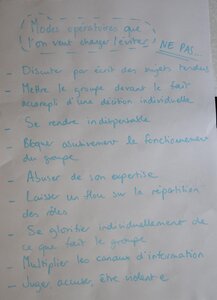 Modes opératoires que
l'on veut changer/éviter
NE PAS...
- Discuter par écrit des sujets tendus
- Mettre le groupe devant le fait
accompli d'une décision individuelle
- Se rendre indispensable
- Bloquer abusivement le fonctionnement
du groupe
- Abuser de son expertise
- Laisser un flou sur la répartition
des rôles
- Se glorifier individuellement de
ce que fait le groupe
- Multiplier les canaux d'information
- Juger, accuser, être violent·e